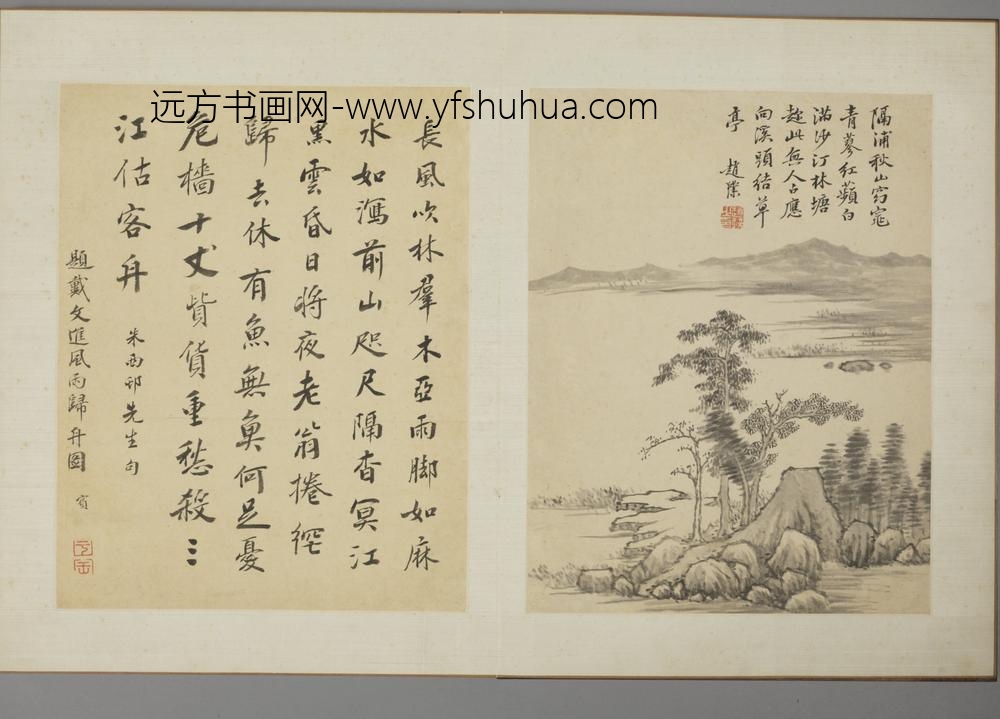 远方书画网-www.yfshuhua.com
隔浦秋山窈窕
青蓼紅蘋白
滿沙汀林塘
趂此無人占應
向溪頭結草
亭 趙
長風吹林羣木亞雨脚如麻
水如瀉前山咫尺隔杳冥江
黑雲昏日將夜老翁捲網
歸去休有魚無魚何足憂
危檣十丈貲貨重愁殺三
江估客舟 朱西邨先生句
題戴文進風雨歸舟圖 賓